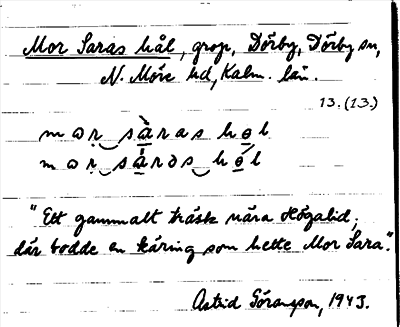 Mor Saras hål, grop, Dörby, Dörby sn,
N. Möre hd, Kalm. län.
13. (13.)
"Ett gammalt träsk nära Högalid,
där bodde en käring som hette Mor Sara".
Astrid Göransson, 1943.